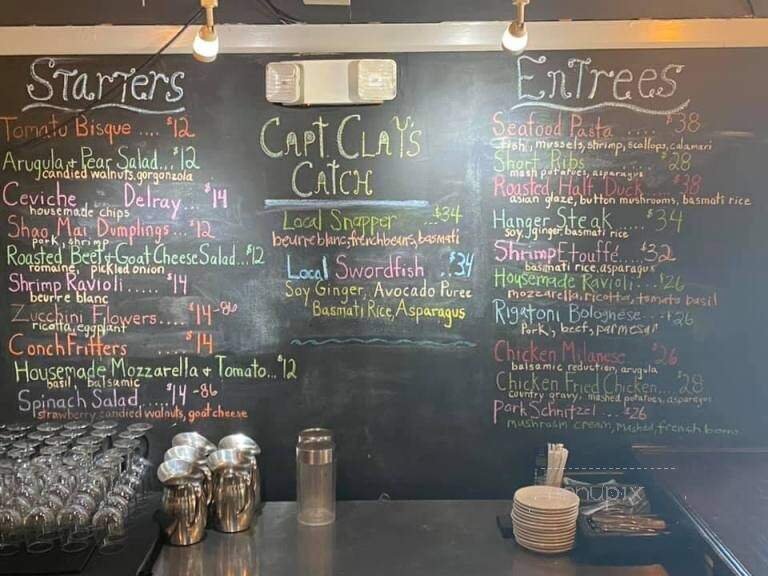 Starters
Tomato Bisque .... $12
Arugula + Pear Salad... $12
candied walnuts, gorgonzola
Ceviche Delray... $14
housemade chips
Shao Mai Dumplings... $12
pork, shrimp
Roasted Beet + Goat Cheese Salad... $12
romaine, pickled onion
Shrimp Ravioli...... $14
beurre blanc
Zucchini Flowers.... $14 -86
ricotta, eggplant
Conch Fritters .... $14
Housemade Mozzarella + Tomato... $12
basil, balsamic
Spinach Salad..... $14 -86
strawberry, candied walnuts, goat cheese
Capt Clay's
Catch
Local Snapper ...$34
beurre blanc, french beans, basmati
Local Swordfish ..$34
Soy Ginger, Avocado Puree
Basmati Rice, Asparagus
Entrees
Seafood Pasta .... $38
fish, mussels, shrimp, scallops, calamari
Short Ribs .... $28
mash potatoes, asparagus
Roasted Half Duck... $38
asian glaze, button mushrooms, basmati rice
Hanger Steak .... $34
soy, ginger, basmati rice
Shrimp Etouffé... $32
basmati rice, asparagus
Housemade Ravioli... $26
mozzarella, ricotta, tomato basil
Rigatoni Bolognese... $26
Pork, beef, parmesan
Chicken Milanese... $26
balsamic reduction, arugula
Chicken Fried Chicken.... $28
country gravy, mashed potatoes, asparagus
Pork Schnitzel ... $26
mushroom cream, mashed, french beans
menupix